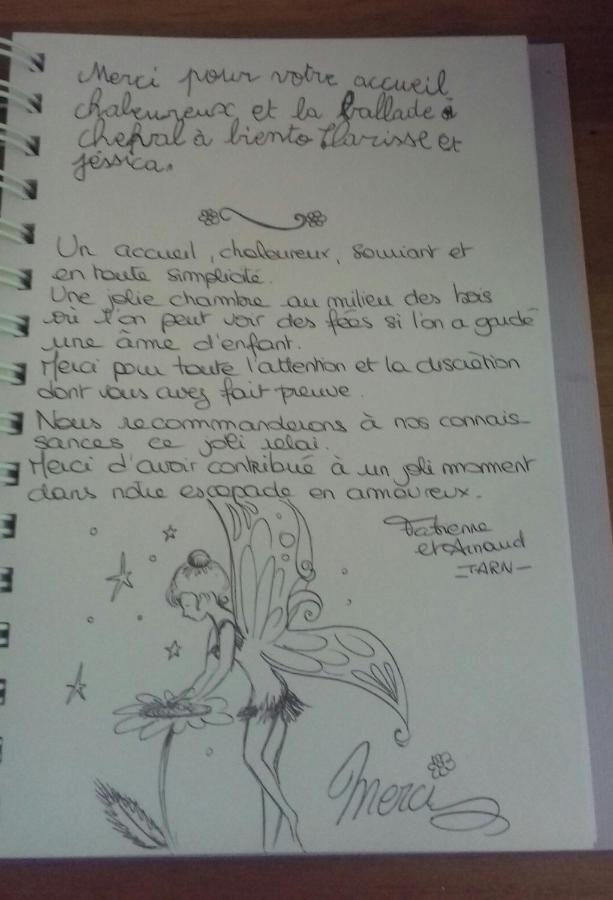 Merci pour votre accueil
chaleureux et la ballade à
cheval à biento Clarisse et
jéssica.
Un accueil, chaleureux, souriant et
en toute simplicité.
Une jolie chambre au milieu des bois
où l'on peut voir des fées si l'on a gardé
une âme d'enfant.
Merci pour toute l'attention et la discrètion
dont vous avez fait preuve.
Nous recommanderons à nos connais-
sances ce joli relai.
Merci d'avoir contribué à un joli moment
dans notre escapade en amoureux.
et Arnaud
-TARN-
Merci